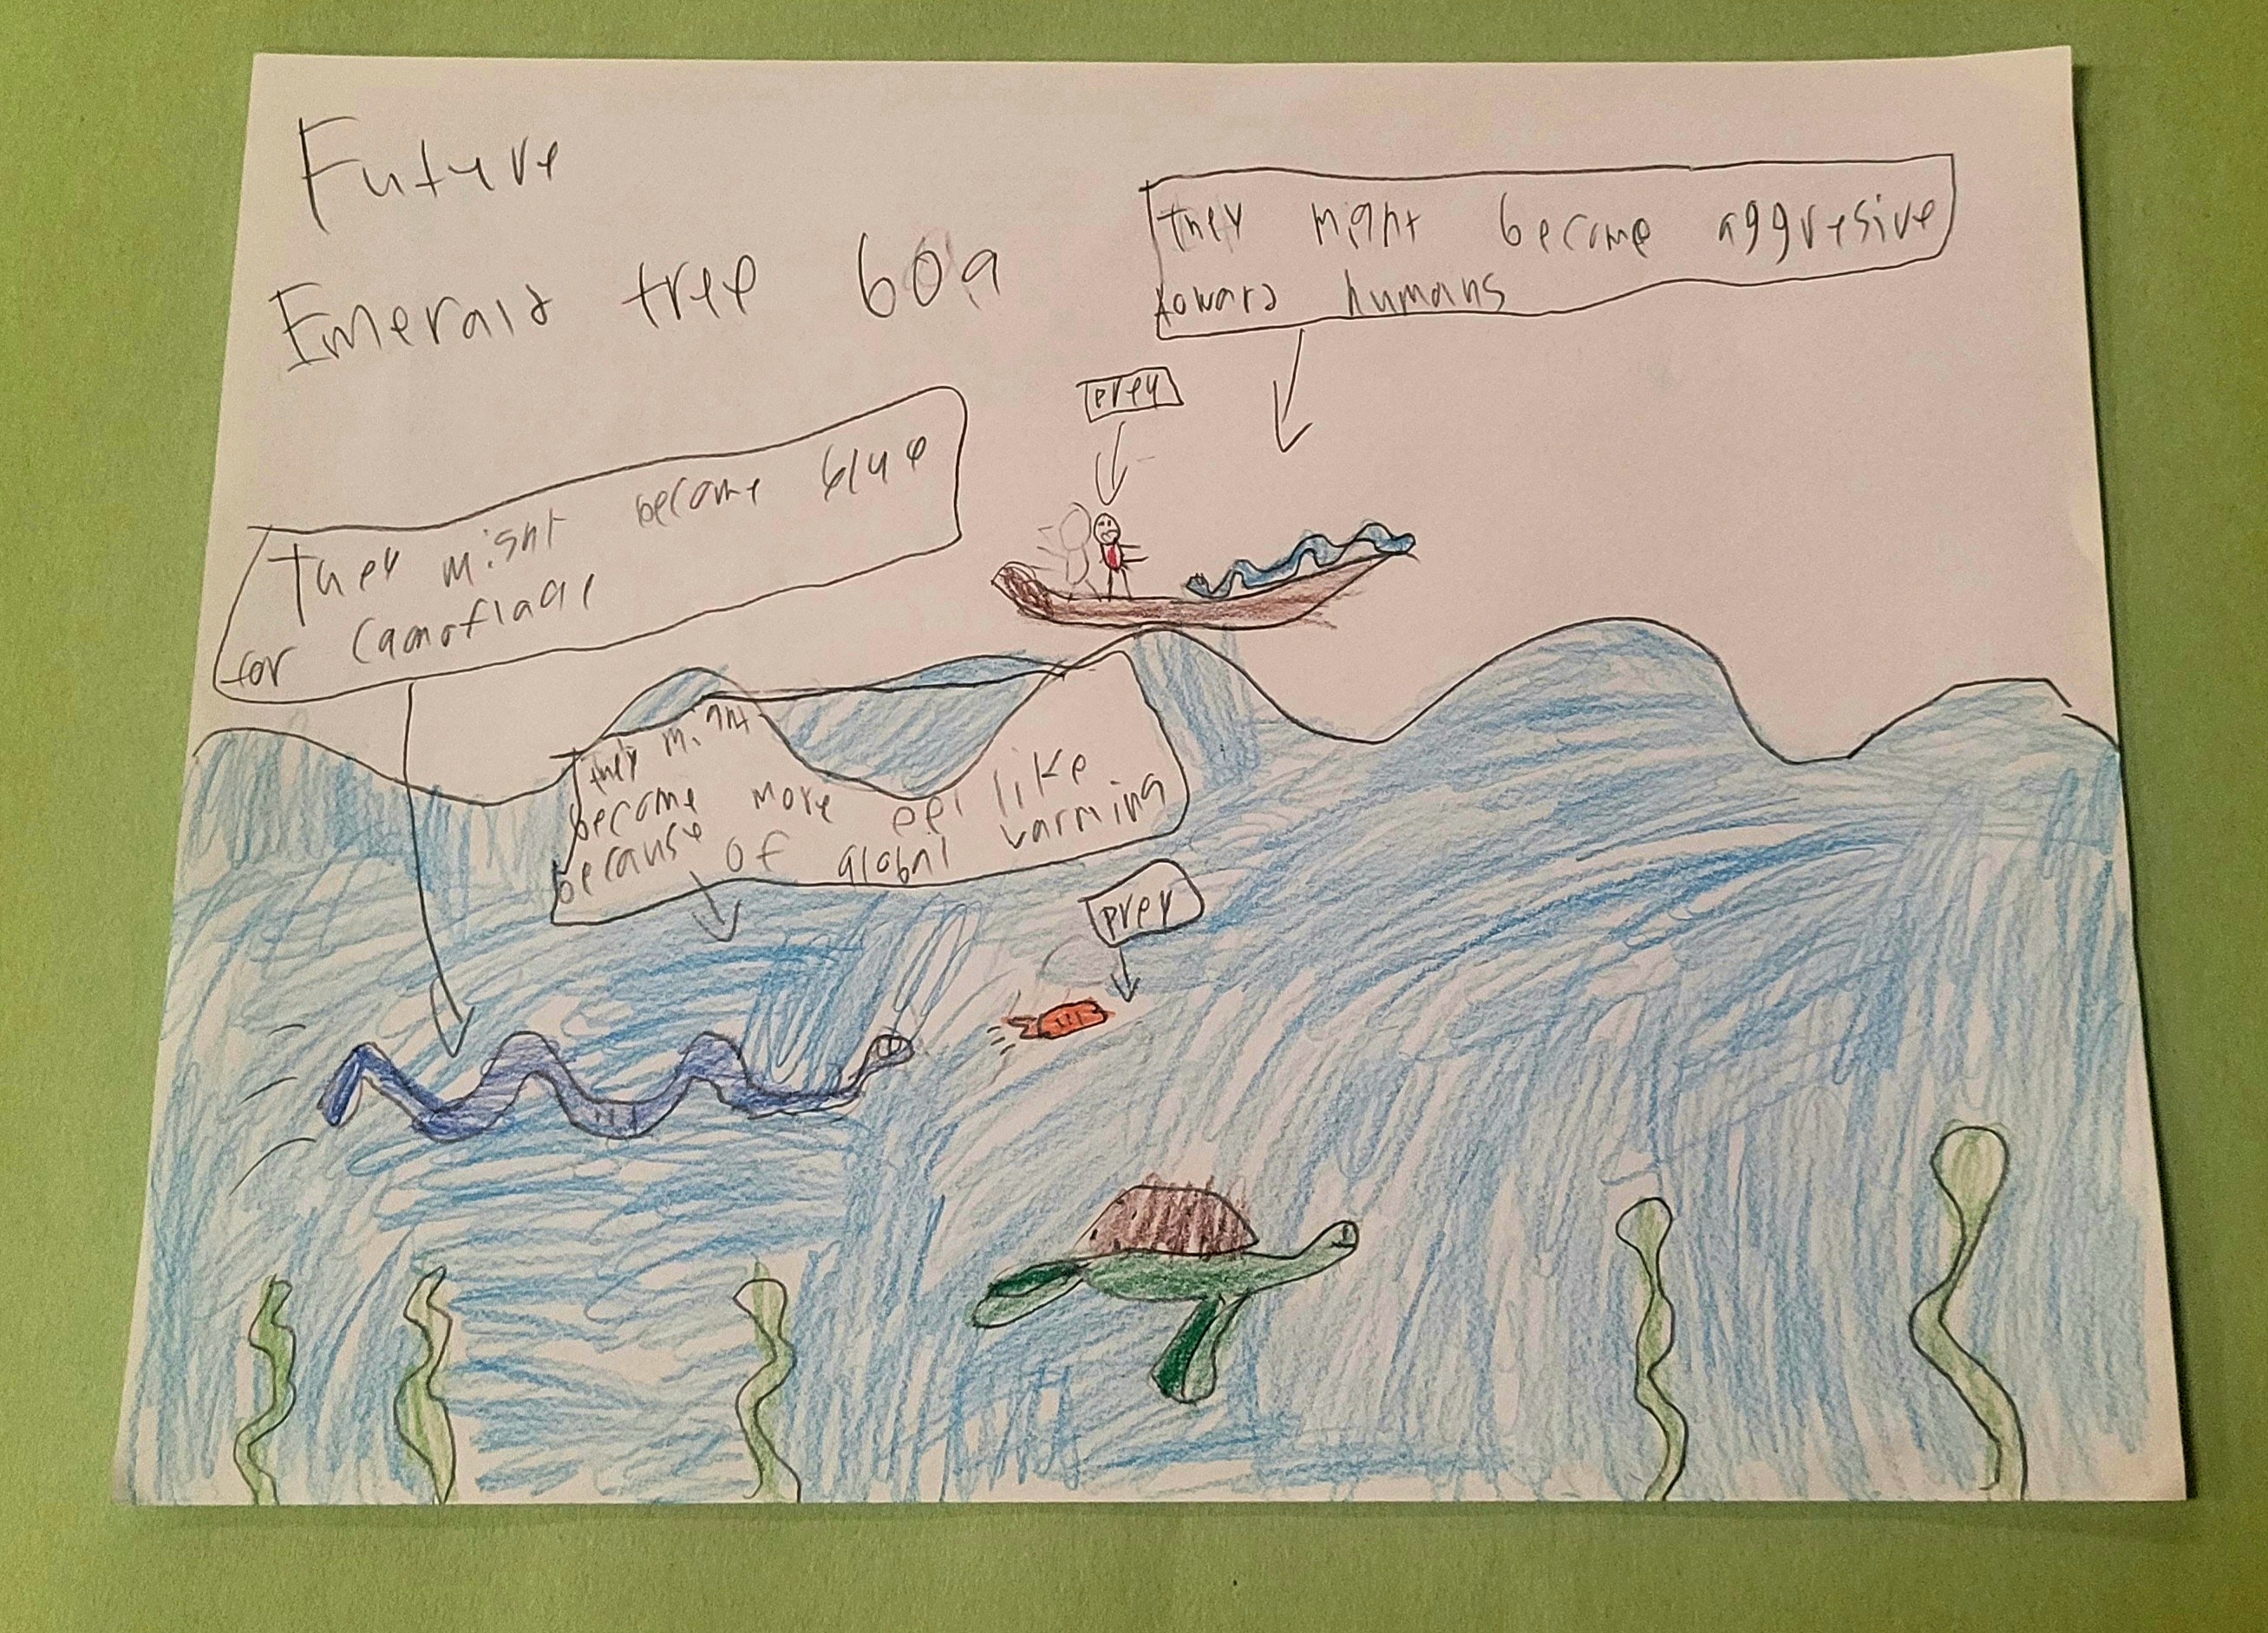 Future
Emerald tree boa
they might become aggresive
toward humans
prey
They might become blue
for camoflage
they might
become more eel like
because of global warming
prey